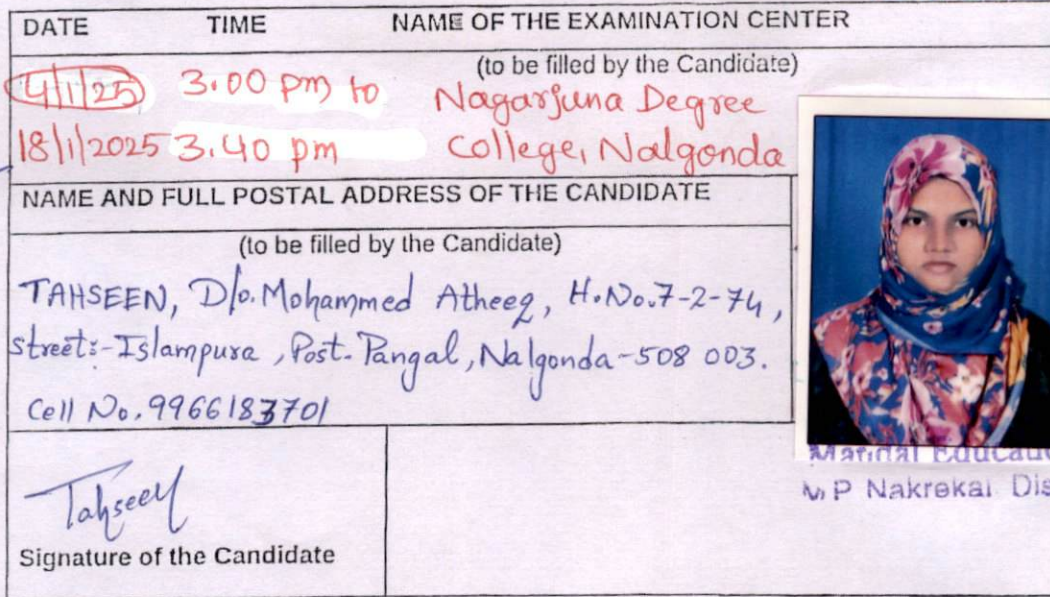 DATE TIME NAME OF THE EXAMINATION CENTER
(to be filled by the Candidate)
4/1/25 3.00 pm to Nagarjuna Degree
18/1/2025 3.40 pm College, Nalgonda
NAME AND FULL POSTAL ADDRESS OF THE CANDIDATE
(to be filled by the Candidate)
TAHSEEN, D/o. Mohammed Atheeq, H.No.7-2-74,
street:-Islampura, Post-Pangal, Nalgonda-508 003.
Cell No. 9966183701
Mandal Educat
M.P Nakrekal Dis
Tahseen
Signature of the Candidate